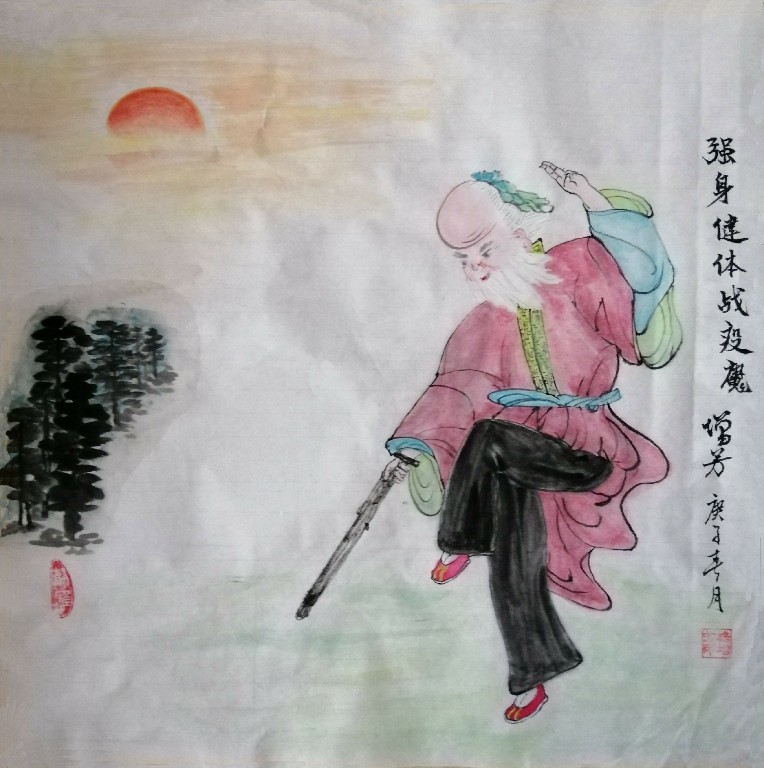 强身健体战疫魔
增芳 庚子春月